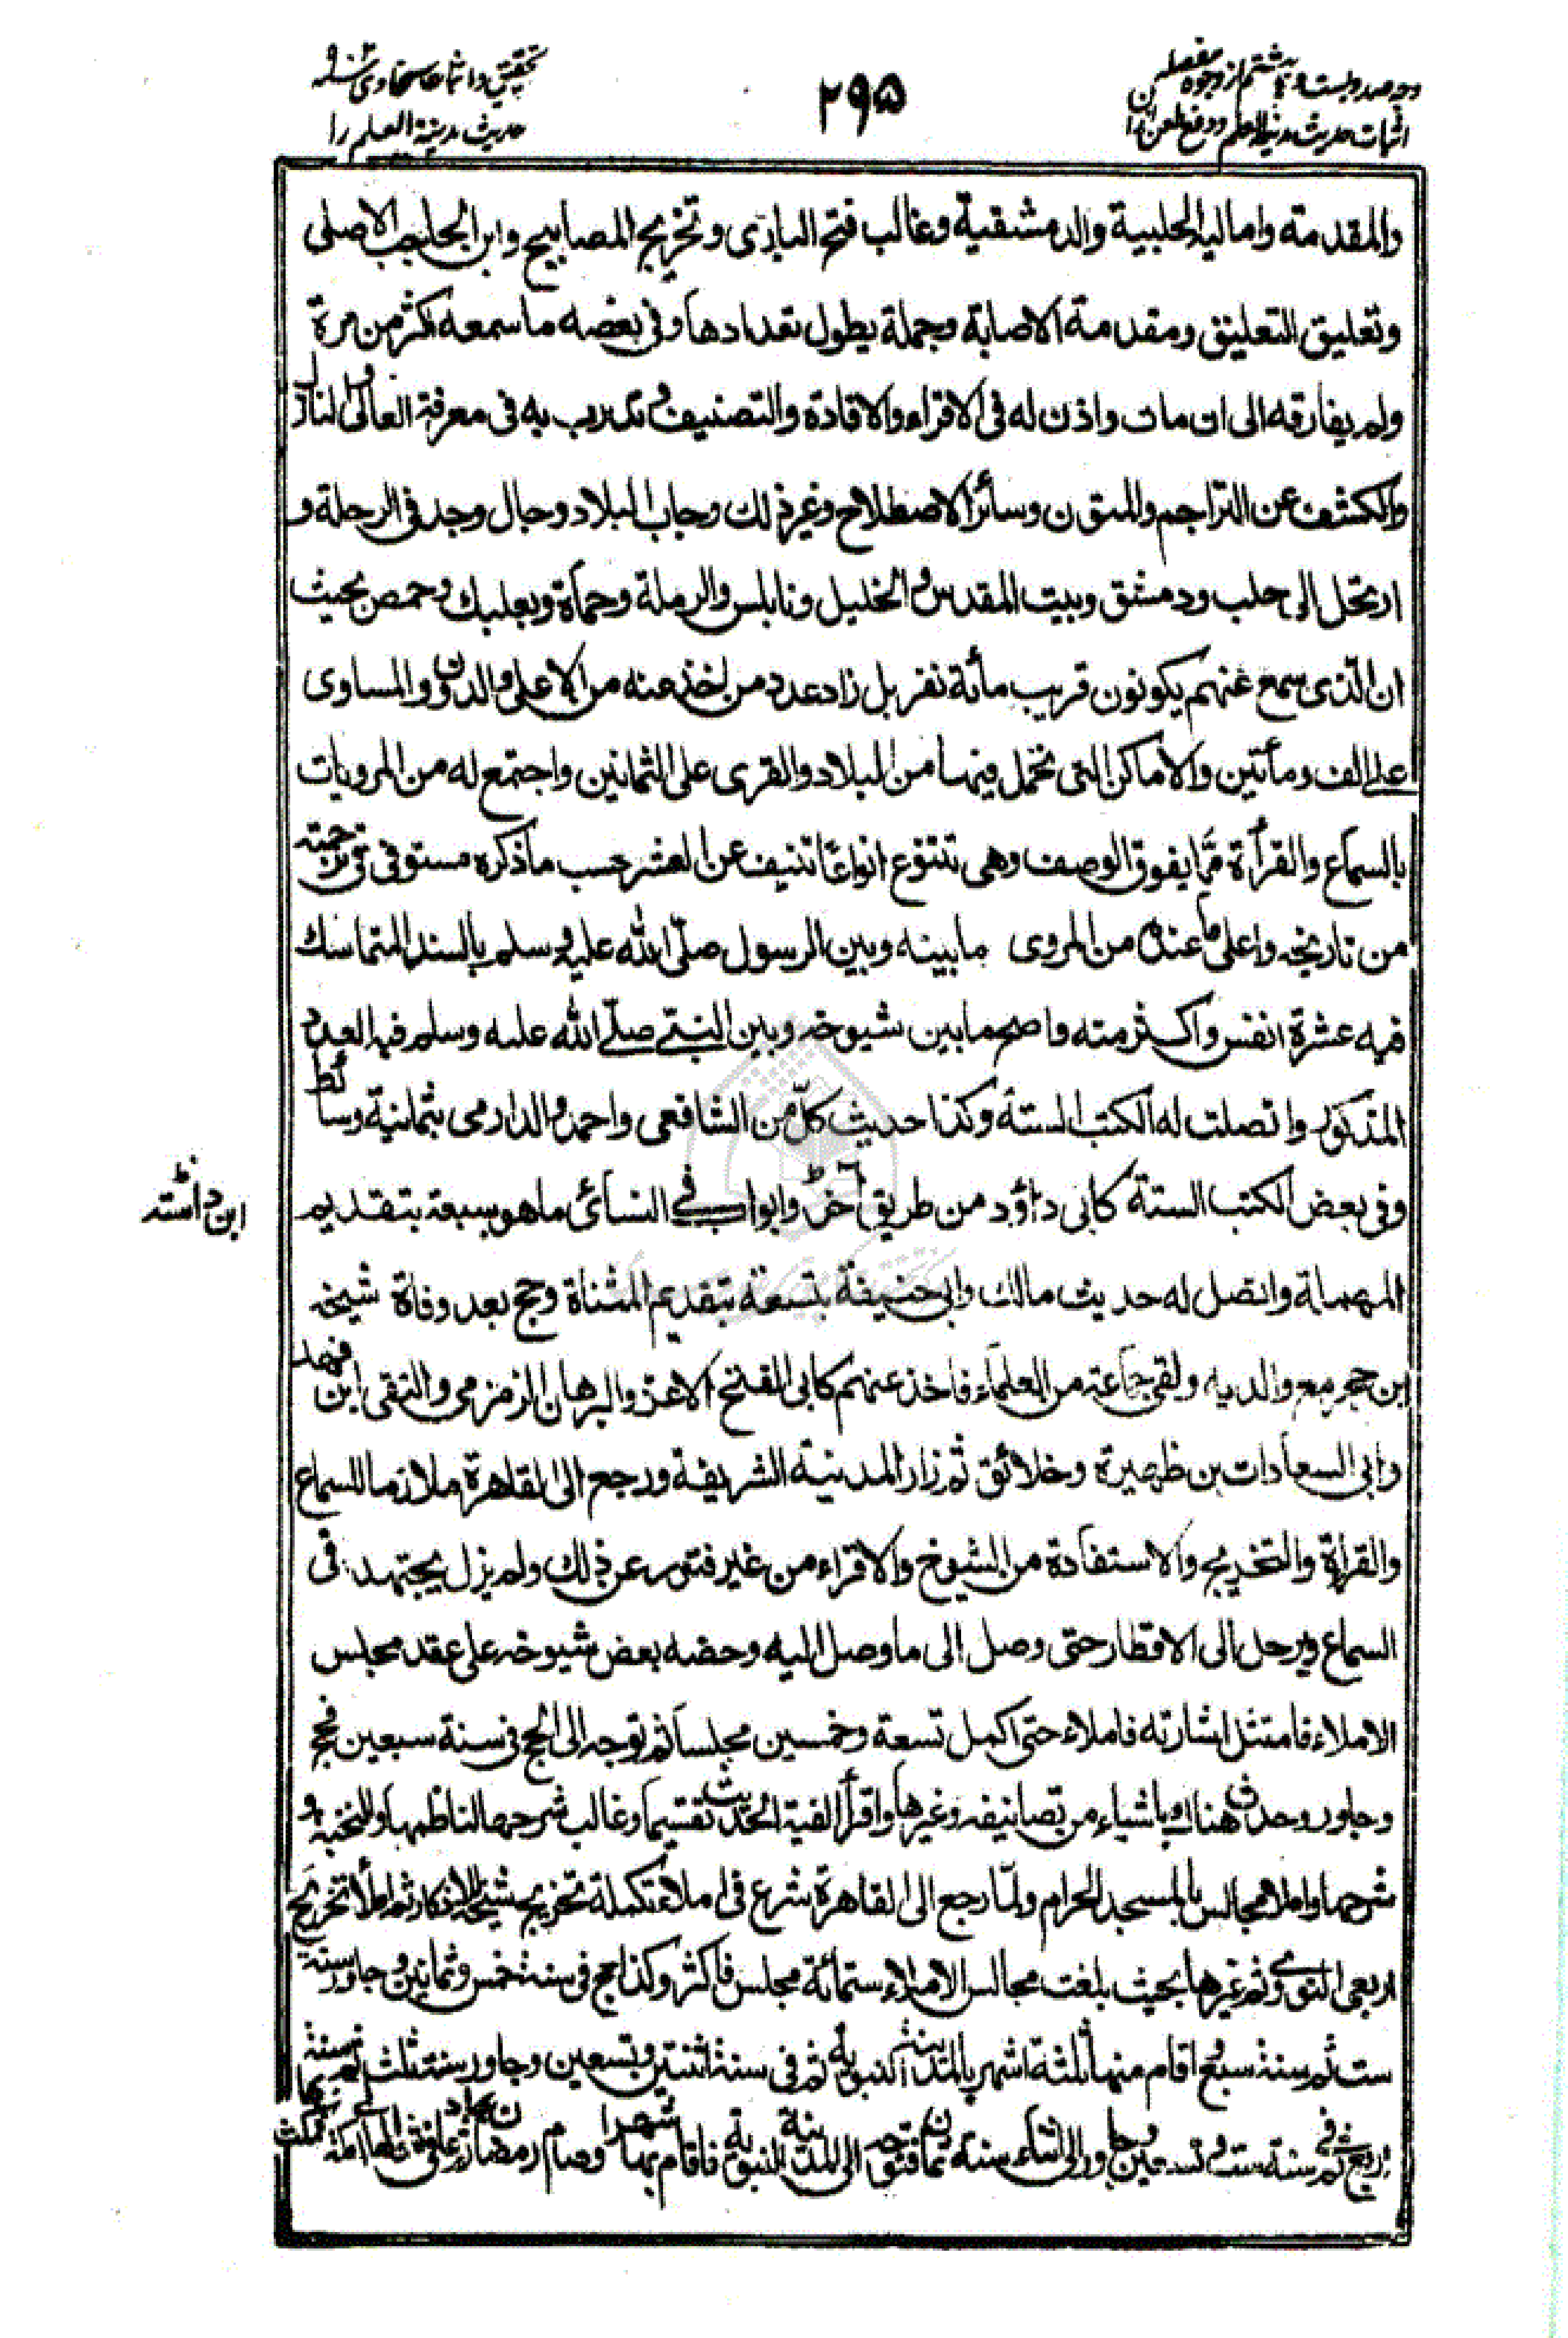 دو صد و بست و هشتم از وجوه مفصله
اثبات حدیث مدینة العلم و دفع طعن
۲۹۵
تحقیق و اثبات سخاوی
حدیث مدینة العلم را
والمقدمة وامالیه الحلبیة والدمشقیة وغالب فتح الباری وتخریج المصابیح وابن الحاجب الاصلی
وتعلیق التعلیق ومقدمة الاصابة وجملة یطول تعدادها وفی بعضه ما سمعه اکثر من مرة
ولم یفارقه الی ان مات واذن له فی الاقراء والافادة والتصنیف وتدرب به فی معرفة العالی والنازل
والکشف عن التراجم والمتون وسائر الاصطلاح وغیر ذلک وجاب البلاد وجال وجد فی الرحلة و
ارتحل الی حلب ودمشق وبیت المقدس والخلیل ونابلس والرملة وحماة وبعلبک وحمص بحیث
ان الذی سمع عنهم یکونون قریب مأئة نفر بل زاد عدد من اخذ عنه من الاعلی والدون والمساوی
علی الف ومأتین والاماکن التی تحمل فیها من البلاد والقری علی الثمانین واجتمع له من المرویات
بالسماع والقرأة مما یفوق الوصف وهی تتنوع انواعا تنیف عن العشر حسب ما ذکره مستوفی فی ترجمته
من تاریخه واعلی ما عنده من المروی ما بینه وبین الرسول صلّی الله علیه وسلم بالسند المتماسک
فیه عشرة انفس واکثر منه واصح ما بین شیوخه وبین النبی صلّی الله علیه وسلم فیه العدد
المذکور واتصلت له الکتب الستة وکذا حدیث کلّ من الشافعی واحمد والدارمی بثمانیة وسائط
وفی بعض الکتب الستة کابی داؤد من طریق آخر وابواب فی النسائی ما هو بسبعة بتقدیم
ابن داسته
المهملة واتصل له حدیث مالک وابی حنیفة بتسعة بتقدیم المثناة وحج بعد وفاة شیخه
ابن حجر مع والدیه ولقی جماعة من العلماء فاخذ عنهم کابی الفتح الاغر والبرهان الزمزمی والتقی ابن فهد
وابی السعادات بن ظهیرة وخلائق ثم زار المدینة الشریفة ورجع الی القاهرة ملازما للسماع
والقرأة والتخریج والاستفادة من الشیوخ والاقراء من غیر فتور عن ذلک ولم یزل یجتهد فی
السماع ویرحل الی الاقطار حتی وصل الی ما وصل الیه وحضه بعض شیوخه علی عقد مجلس
الاملاء فامتثل اشارته فاملاء حتی اکمل تسعة وخمسین مجلسا ثم توجه الی الحج فی سنة سبعین فحج
وجاور وحدث هناک باشیاء من تصانیفه وغیرها واقرأ الفیة الحدیث تقسیما وغالب شرحها لناظمها والنخبة و
شرحها واملا مجالس بالمسجد الحرام ولمّا رجع الی القاهرة شرع فی املاء تکملة تخریج شیخه للاذکار ثم املأ تخریج
اربعی النووی ثم غیرها بحیث بلغت مجالس الاملاء ستمائة مجلس فاکثر وکذا حج فی سنة خمس وثمانین وجاور سنة
ست ثم سنة سبع اقام منها ثلثة اشهر بالمدینة النبویة ثم فی سنة اثنتین وتسعین وجاور سنة ثلث ثم سنة
اربع ثم فی سنة ست وتسعین وجاور الی اثناء سنة ثمان فتوجه الی المدینة النبویة فاقام بها شهرا وصام رمضان بها